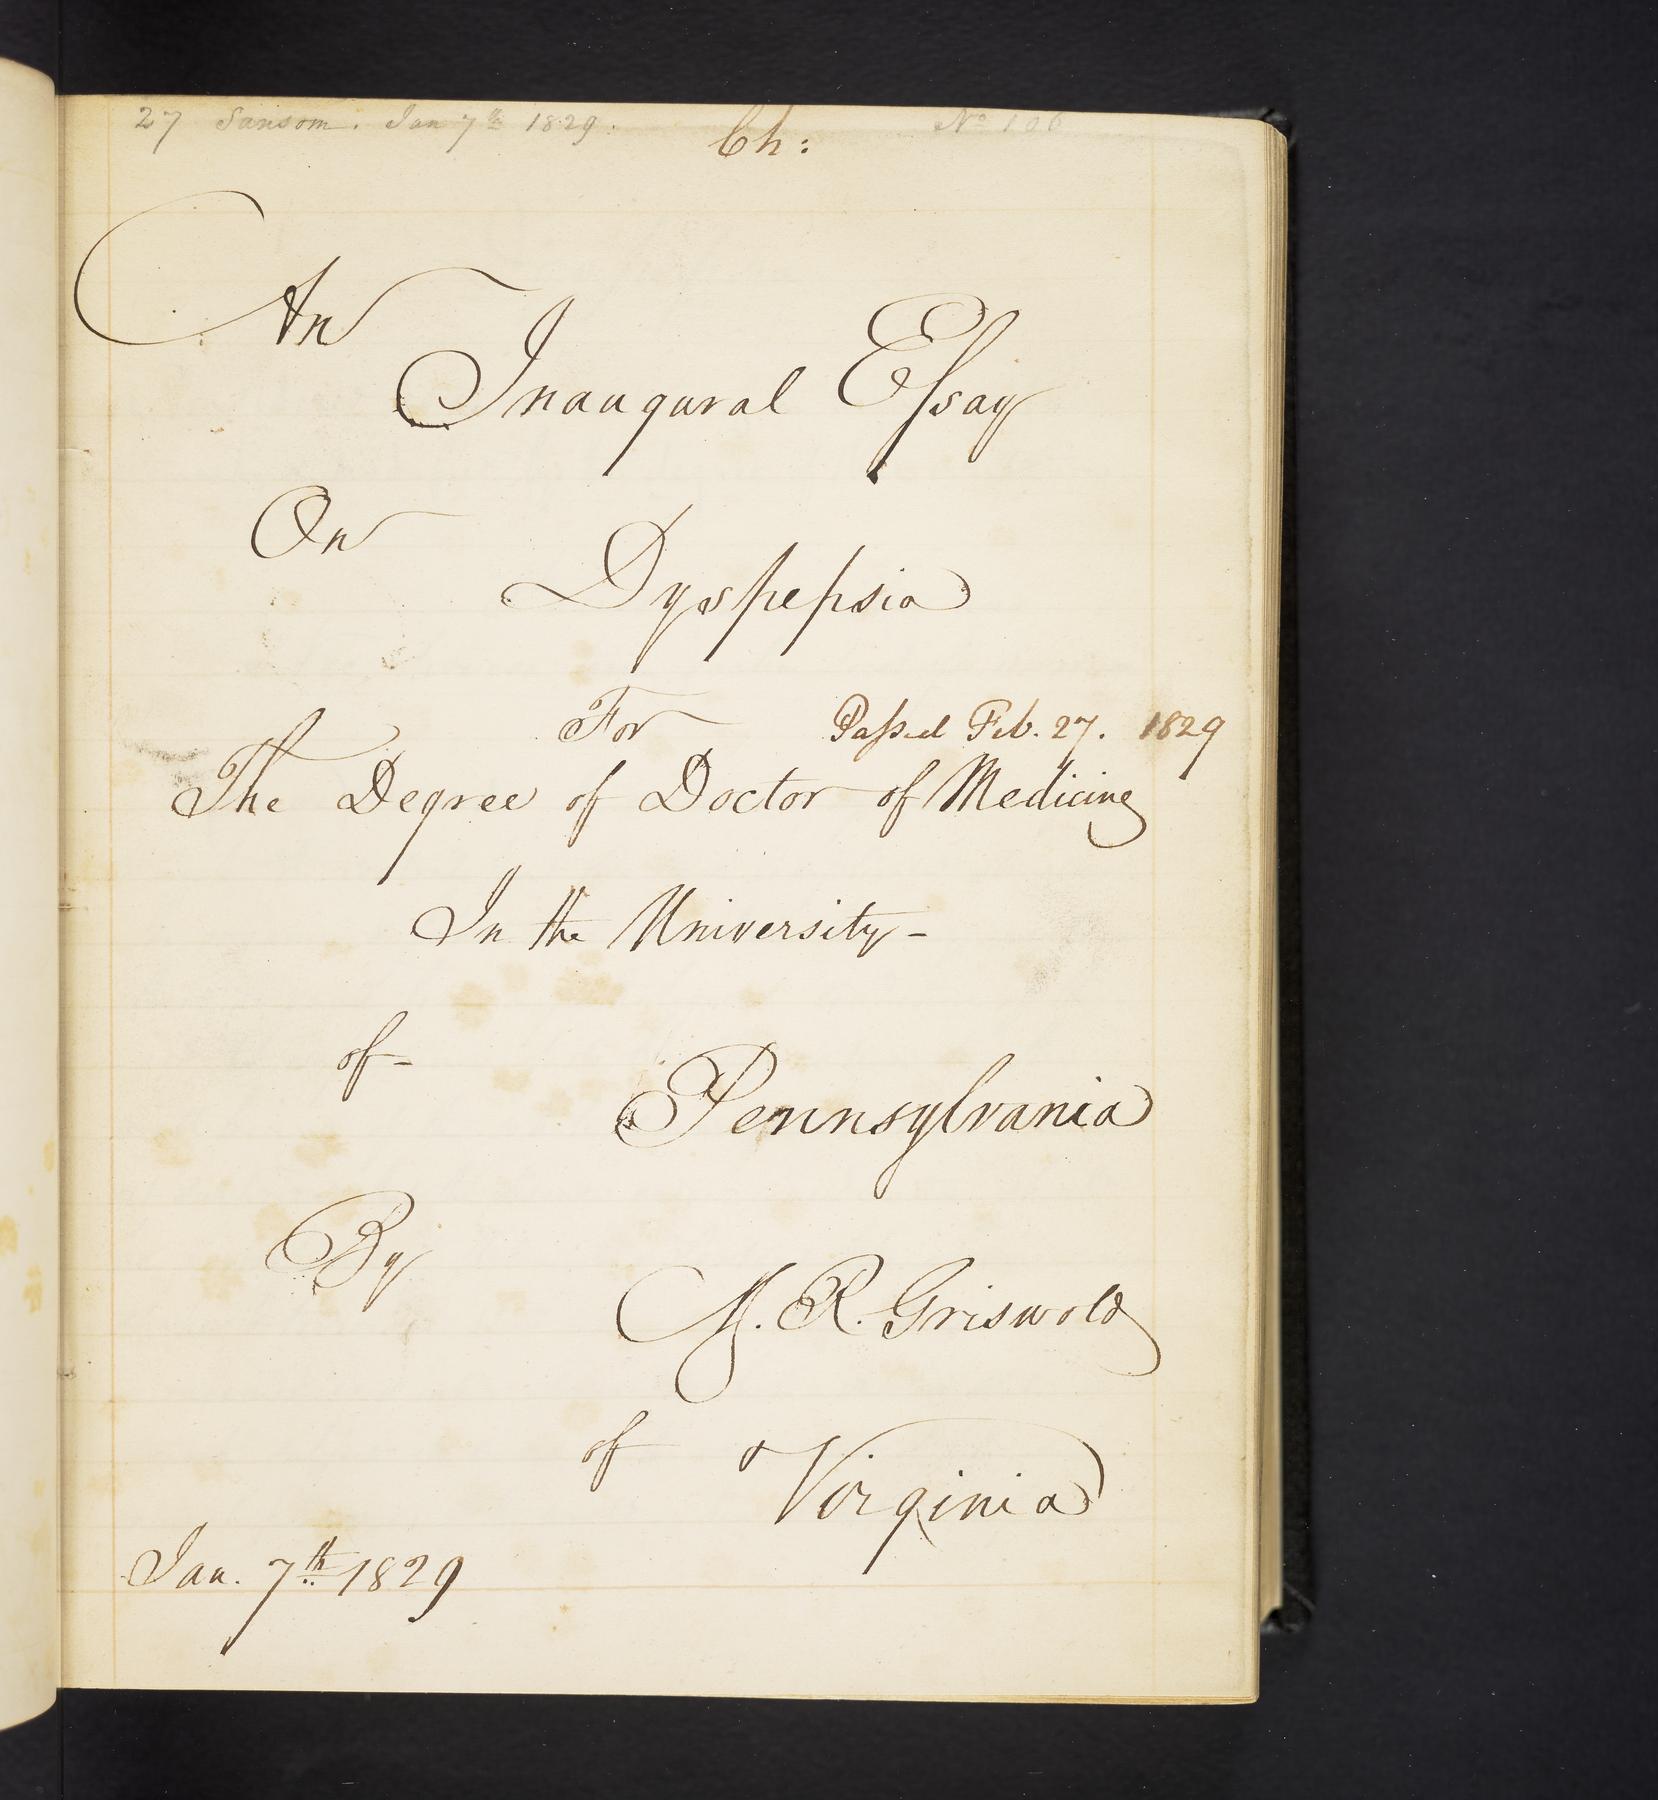 27 Sansom. Jan 7th 1829. No 106
Ch:
An
Inaugural Essay
On
Dyspepsia
For
Passed Feb. 27. 1829
The Degree of Doctor of Medicine
In the University-
of-
Pennsylvania
By
M. R. Griswold
of
Virginia
Jan. 7th 1829